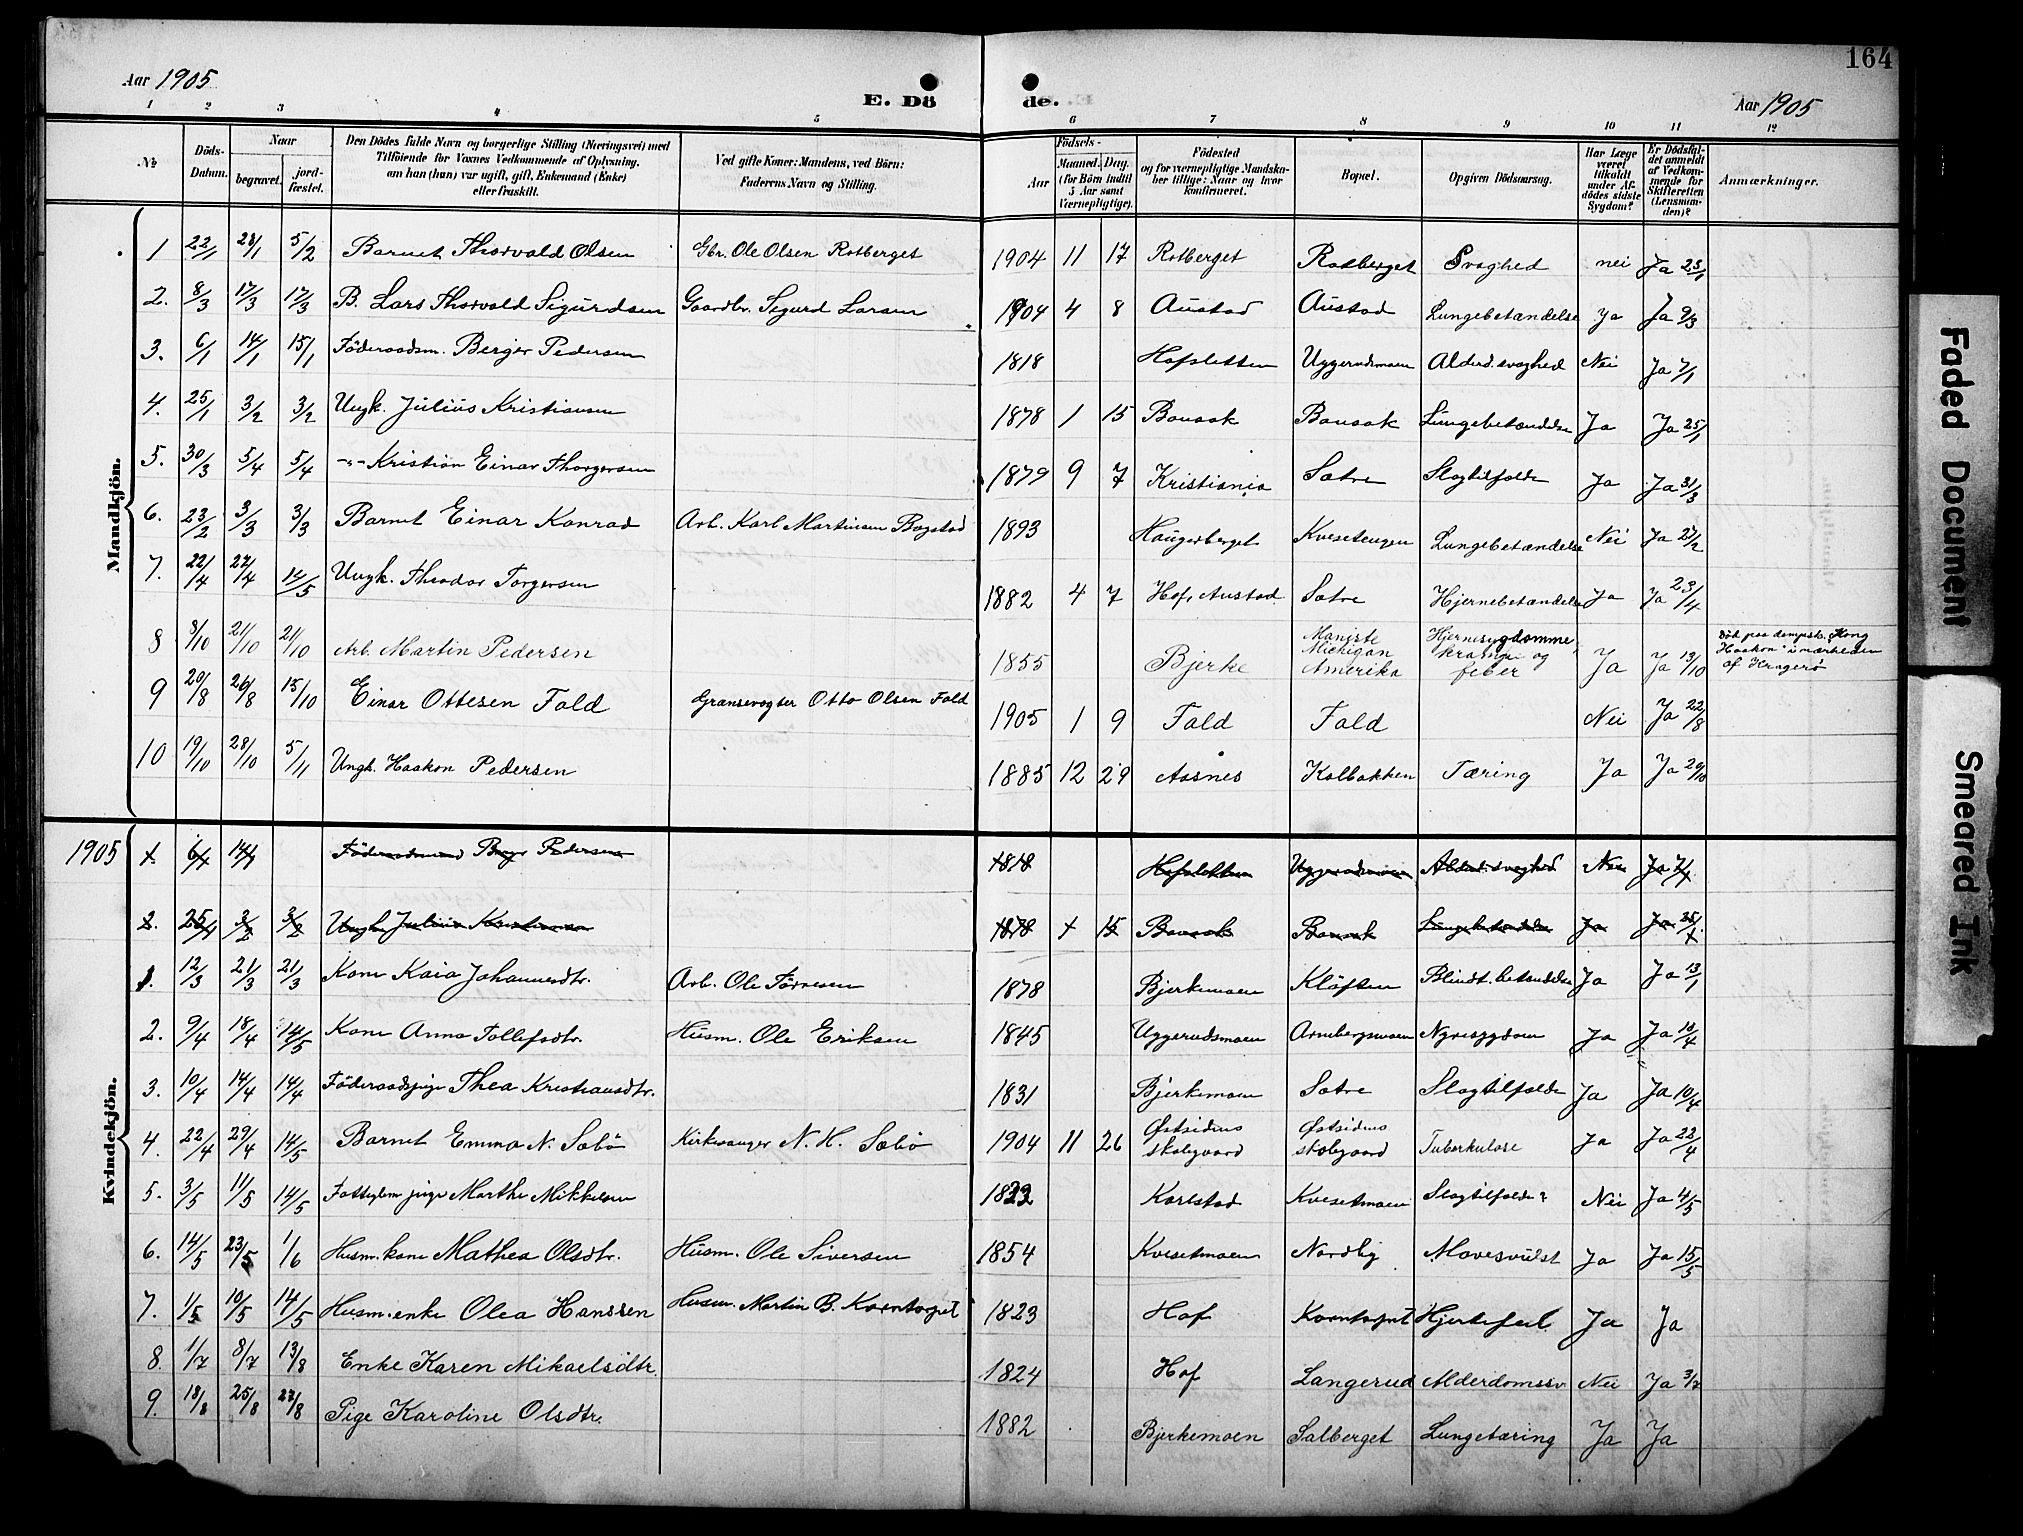 164
Aar 1905
E. Dö de.
Aar 1905
1 2 3 4 5 6 7 8 9 10 11 12
№
Döds-Datum.
Naar
begravet.
jord-fæstet.
Den Dödes fulde Navn og borgerlige Stilling (Næringsvei) med
Tilföiende for Voxnes Vedkommende af Oplysning,
om han (hun) var ugift, gift, Enkemand (Enke)
eller fraskilt.
Ved gifte Koner: Mandens, ved Börn:
Faderens Navn og Stilling.
Födsels-
Aar
Maaned. Dag.
(for Börn indtil
5 Aar samt
Værnepligtige).
Födested
og for værnepligtige Mandska-
ber tillige: Naar og hvor
konfirmeret.
Bopæl.
Opgiven Dödsaarsag.
Har Læge
været
tilkaldt
under Af-
dödes sidste
Sygdom?
Er Dödsfal-
det anmeldt
af Vedkom-
mende for
Skifteretten
(Lensman-
den)?
Anmærkninger.
Mandkjön.
1 22/1 28/1 5/2 Barnet Thorvald Olsen Gbr. Ole Olsen Rotberget 1904 11 17 Rotberget Rotberget Svaghed nei Ja 23/1
2. 8/3 17/3 17/3 B. Lars Thorvald Sigurdsen Gaardbr. Sigurd Larsen 1904 4 8 Austad Austad Lungebetændelse Ja Ja 9/3
3. 6/1 14/1 15/1 Föderaadsm. Berger Pedersen 1818 Hofsletten Uggerudsmoen Alderd.svaghed Nei Ja 7/1
4. 25/1 3/2 3/2 Ungk. Julius Kristiansen 1878 1 15 Bousak Bousak Lungebetændelse Ja Ja 25/1
5. 30/3 5/4 5/4 -"- Kristian Einar Thorgersen 1879 9 7 Kristiania Sætre Slagtilfælde Ja Ja 31/3
6. 23/2 3/3 3/3 Barnet Einar Konrad Arb. Karl Martinsen Bogstad 1893 Haugerberget Kvesetengen Lungebetændelse Nei Ja 27/2
7. 22/4 27/4 14/5 Ungk. Theodor Torgersen 1882 4 7 Hof, Austad Sætre Hjernebetændelse Ja Ja 23/4
8 8/10 21/10 21/10 Arb. Martin Pedersen 1855 Bjerke Maniste Michigan Amerika Hjernesygdomme, krampe og feber Ja Ja 13/10 Död paa dampsk. "Kong Haakon" i nærheden af Kragerø
9 20/8 26/8 15/10 Einar Ottesen Fald Grænsevogter Otto Olsen Fald 1905 1 9 Fald Fald Nei Ja 22/8
10 19/10 28/10 5/11 Ungk. Haakon Pedersen 1885 12 29 Aasnes Kolbakken Tæring Ja Ja 20/10
1905
Kvindekjön.
1. 6/1 14/1 Föderaadsmand Berger Pedersen 1818 Hofsletten Uggerudsmoen Alderd.svaghed Nei Ja 7/1
2. 25/1 3/2 3/2 Ungk. Julius Kristiansen 1878 1 15 Bousak Bousak Lungebetændelse Ja Ja 25/1
1. 12/3 21/3 21/3 Kone Kaia Johannesdtr. Arb. Ole Törresen 1878 Bjerkemoen Klöften Blindt.betændelse Ja Ja 13/1
2. 9/4 18/4 14/5 Kone Anna Tollefsdtr. Husm. Ole Eriksen 1845 Uggerudsmoen Arnebergsmoen Nyresygdom Ja Ja 10/4
3. 10/4 14/4 14/4 Föderaadspige Thea Kristiansdtr. 1831 Bjerkemoen Sætre Slagtilfælde Ja Ja 10/4
4. 22/4 29/4 14/5 Barnet Emma N. Sæbö Kirkesanger N. H. Sæbö 1904 11 26 Østsidens skolegaard Østsidens skolegaard Tuberkulose Ja Ja 22/4
5. 3/5 11/5 14/5 Fattiglem pige Marthe Mikkelsen 1823 Karlstad Kvesetmoen Slagtilfælde? Nei Ja 4/5
6. 14/5 23/5 1/6 Husm.kone Mathea Olsdtr. Husm. Ole Siversen 1854 Kvesetmoen Nordby Mavesvulst Ja Ja 15/5
7. 1/5 10/5 14/5 Husm.enke Olea Hanssen Husm. Martin B. Korntorpet 1823 Hof Korntorpet Hjertefeil Ja Ja
8. 1/7 8/7 13/8 Enke Karen Mikaelsdtr. 1824 Hof Langerud Alderdomssv. Nei Ja 3/7
9. 18/8 25/8 27/8 Pige Karoline Olsdtr. 1882 Bjerkemoen Salberget Lungetæring Ja Ja
Faded Document
Smeared Ink